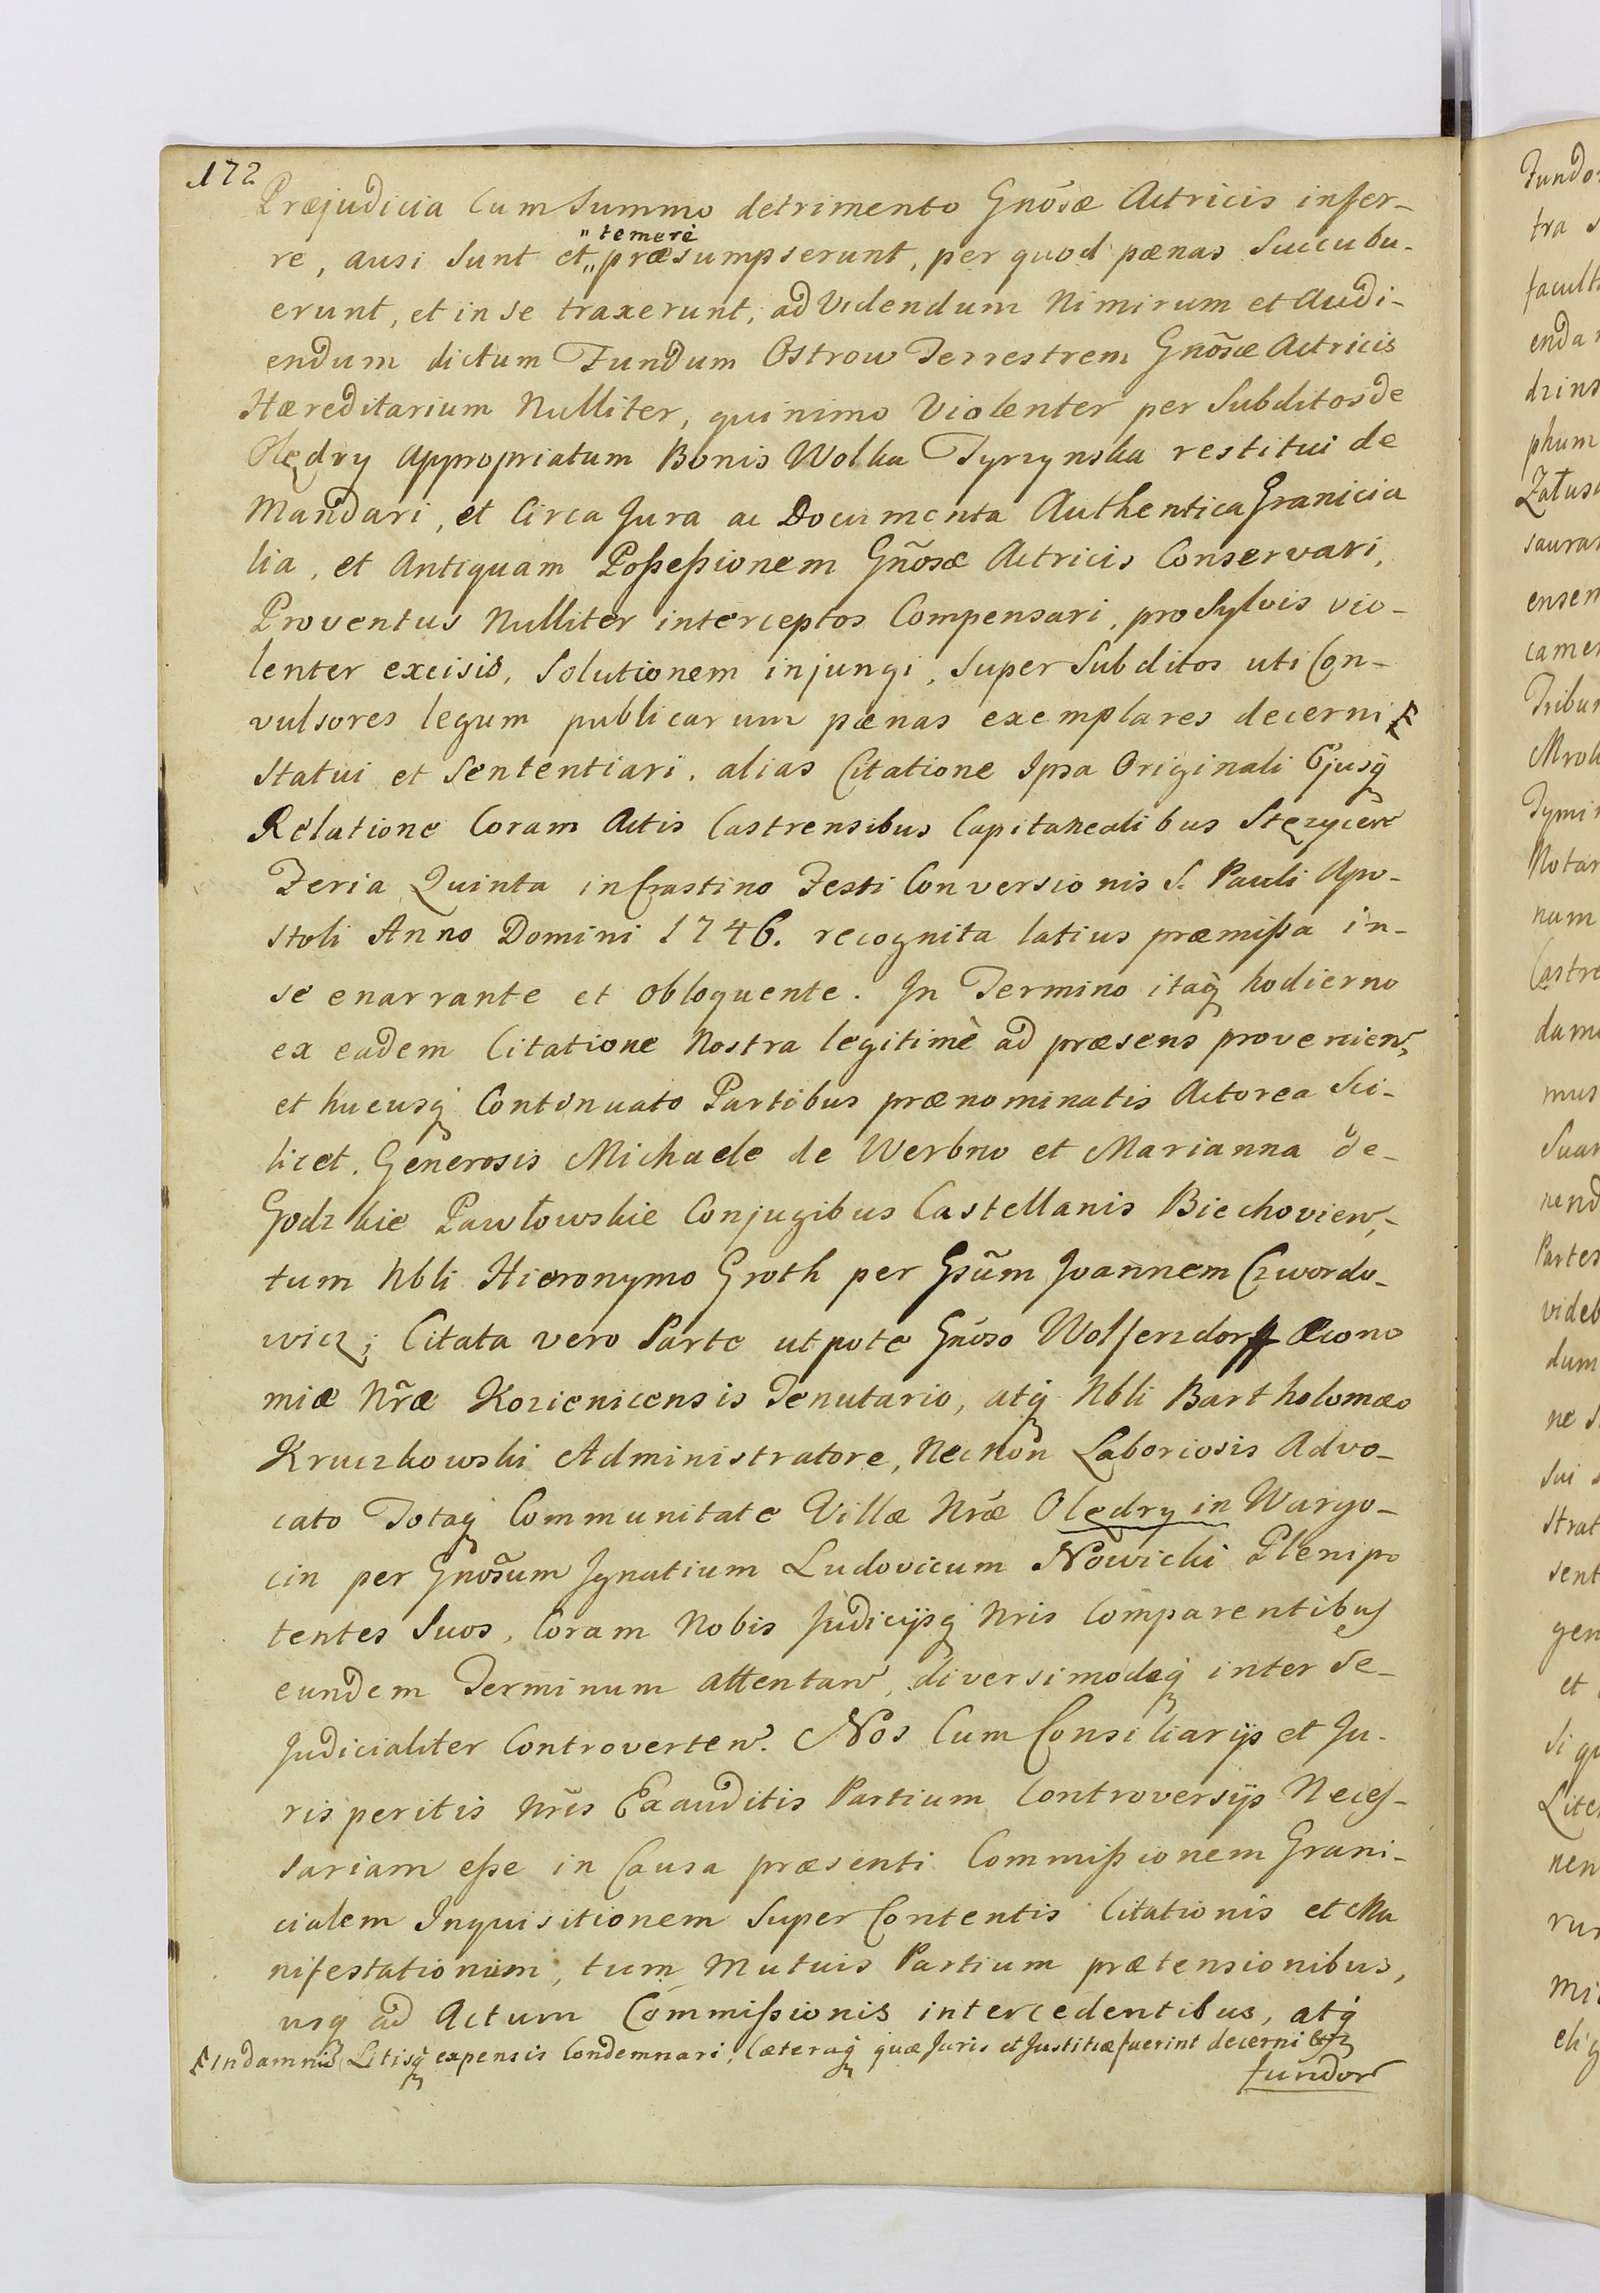 172
Præjudicia Cum Summo detrimento Gnõsæ Actricis infer-
re, ausi sunt et „ temerè præsumpserunt, per quod pænas Succubu-
erunt, et in se traxerunt, ad Videndum Nimirum et Audi-
endum dictum Fundum Ostrow Terrestrem Gnõsæ Actricis
Hæreditarium Nulliter, quinimo Violenter per Subditos de
Olędry Appropriatum Bonis Wolka Tyrzynska restitui de
Mandari, et Circa Jura ac Documenta Authentica Granicia
lia, et Antiquam Poßeßionem Gñosæ Actricis Conservari,
Proventus Nulliter interceptos Compensari, pro Sylvis vio-
lenter excisis, Solutionem injungi, Super Subditos uti Con-
vulsores legum publicarum pænas exemplares decerni
Statui et Sententiari. alias Citatione Ipsa Originali Ejusq
Relatione Coram Actis Castrensibus Capitanealibus Stęzycen
Feria Quinta in Crastino Festi Conversionis S. Pauli Apo-
stoli Anno Domini 1746. recognita latius præmißa in-
se enarrante et obloquente. In Termino itaq hodierno
ex eadem Citatione Nostra legitimè ad præsens provenien,
et hucusq Continuato Partibus prænominatis Actorea Sci-
licet. Generosis Michaele de Werbno et Marianna de-
Godzkie Pawłowskie Conjugibus Castellanis Biechovien,-
tum Nbli Hieronymo Groth per Gsũm Joannem Czwordo-
wicz; Citata vero Parte utpote Gnõso Wolfenzdorff Æcono
miæ Nr̃æ Kozienicensis Tenutario, atq Nbli Bartholomæo
Kruczkowski Administratore, Necnon Laboriosis Advo-
cato Totaq Communitate Villæ Nræ Olędry in Wargo-
cin per Gnõsum Ignatium Ludovicum Nowicki Plenipo
tentes Suos, Coram Nobis Judicijsq Nris Comparentibus
eundem Terminum attentan, diversimodeq inter Se-
Judicialiter Controverten. Nos Cum Consiliarijs et Ju-
ris peritis Nrĩs Exauditis Partium Controversijs Neces-
sariam eße in Causa præsenti Commißionem Grani-
cialem Inquisitionem Super Contentis Citationis et Ma
nifestationum, tum Mutuis Partium prætensionibus,
usq ad Actum Commißionis intercedentibus, atq
In damnis Litisq expensis Condemnari, Cæteraq quæ Juris et Justitiæ fuerint decerni
fundor